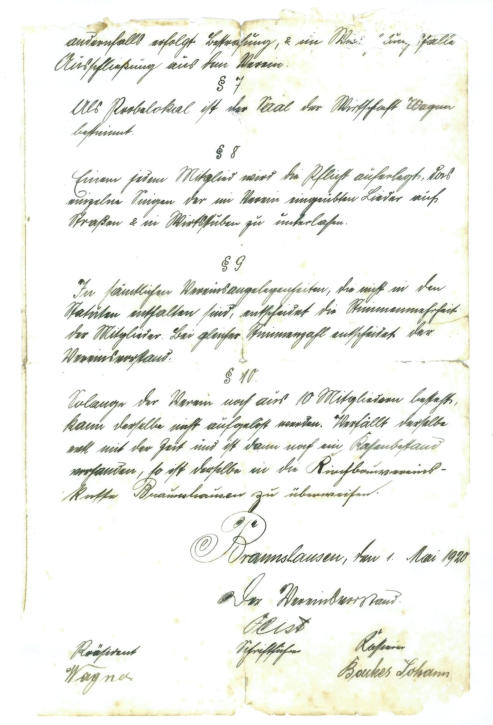 andernfalls erfolgt Bestrafung, & im Falle
Ausschließung aus dem Verein.
§ 7
Als Probelokal ist der Saal der Wirtschaft Wagner
bestimmt.
§ 8
Einem jedem Mitglied wird die Pflicht auferlegt, das
einzelne Singen der im Verein eingeübten Lieder auf
Straßen & in Wirtsstuben zu unterlassen.
§ 9
In sämtlichen Vereinsangelegenheiten, die nicht in den
Statuten enthalten sind, entscheidet die Stimmenmehrheit
der Mitglieder. Bei gleicher Stimmenzahl entscheidet der
Vereinsvorstand.
§ 10.
Solange der Verein noch aus 10 Mitgliedern besteht,
kann derselbe nicht aufgelöst werden. Verfällt derselbe
mit der Zeit und ist dann noch ein Kassenbestand
vorhanden, so ist derselbe in die Kirchbauvereins-
kasse zu überweisen.
den 1. Mai 1920
Der Vereinsvorstand.
Präsident Schriftführer Kassierer
Wagner Backes Johann